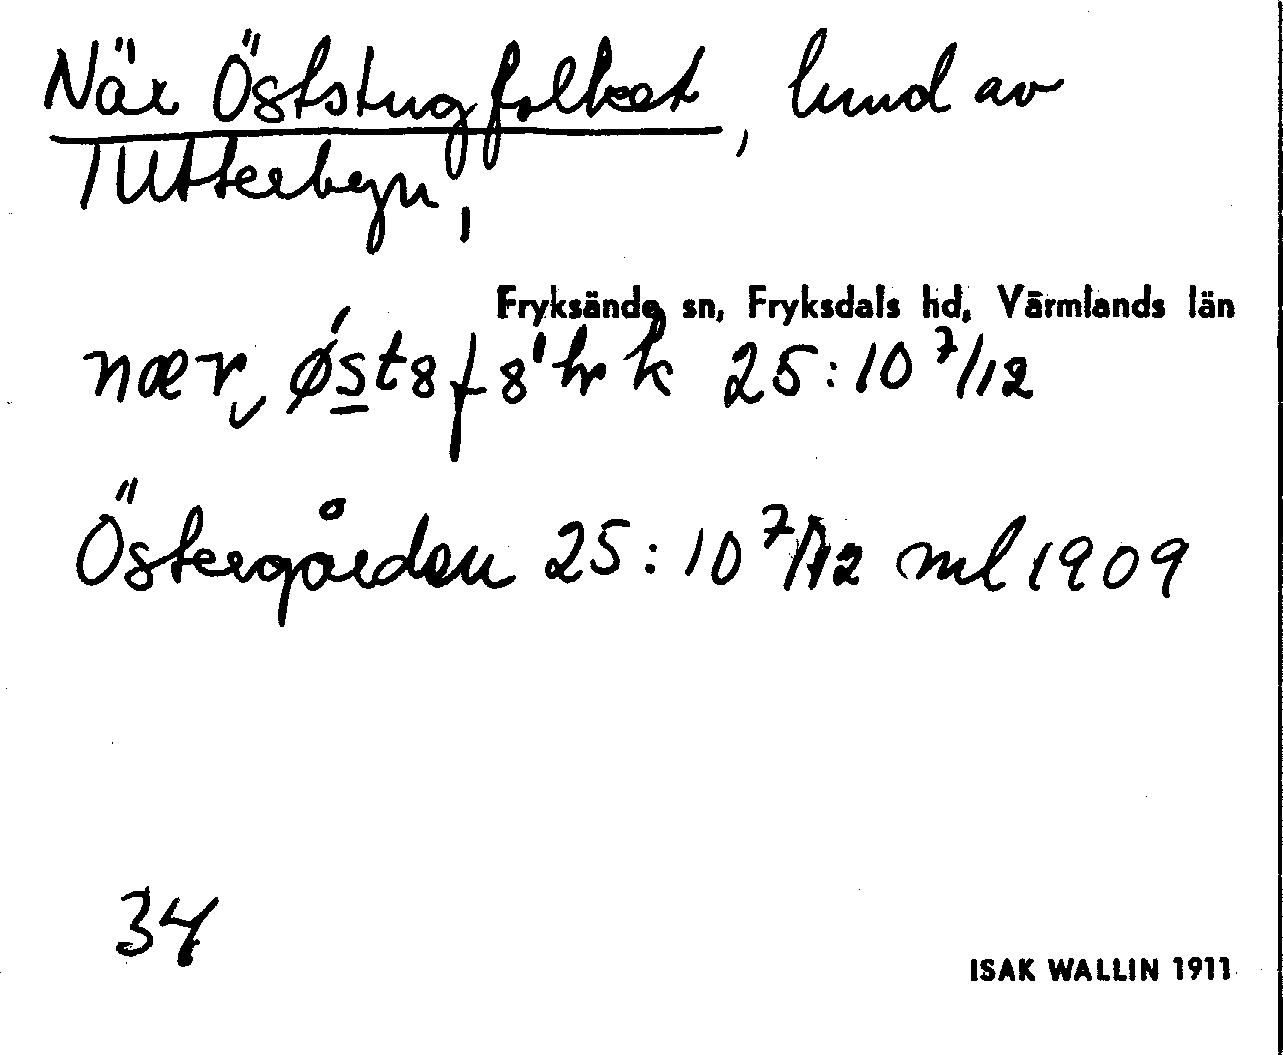 När Öststugfolket, hemd av
1 Utterbyn,
Fryksände sn, Fryksdals hd, Värmlands län
nær
25:10 7/12
Östergården 25:10 7/12 ml 1909
34
ISAK WALLIN 1911